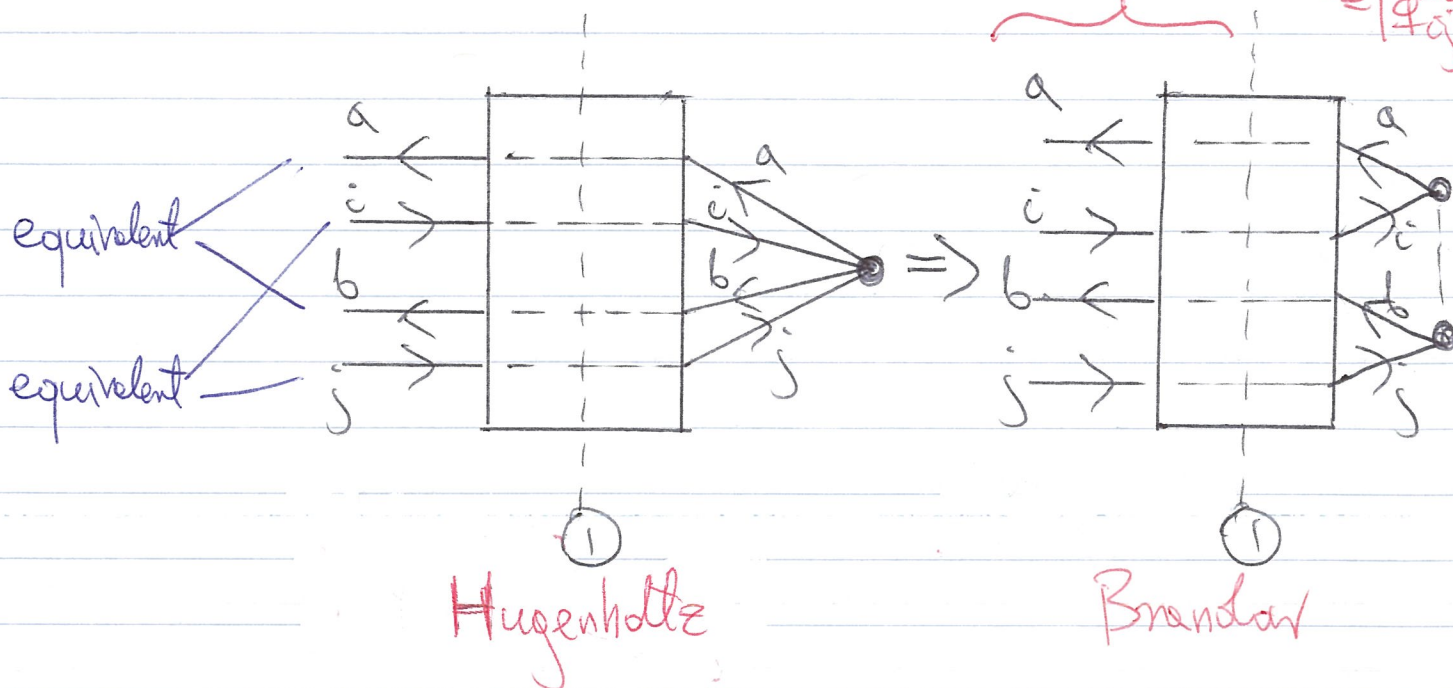 a
i
b
j
equivalent
equivalent
a
i
b
j
=>
a
i
b
j
a
i
b
j
1
1
Hugenholtz
Brandow